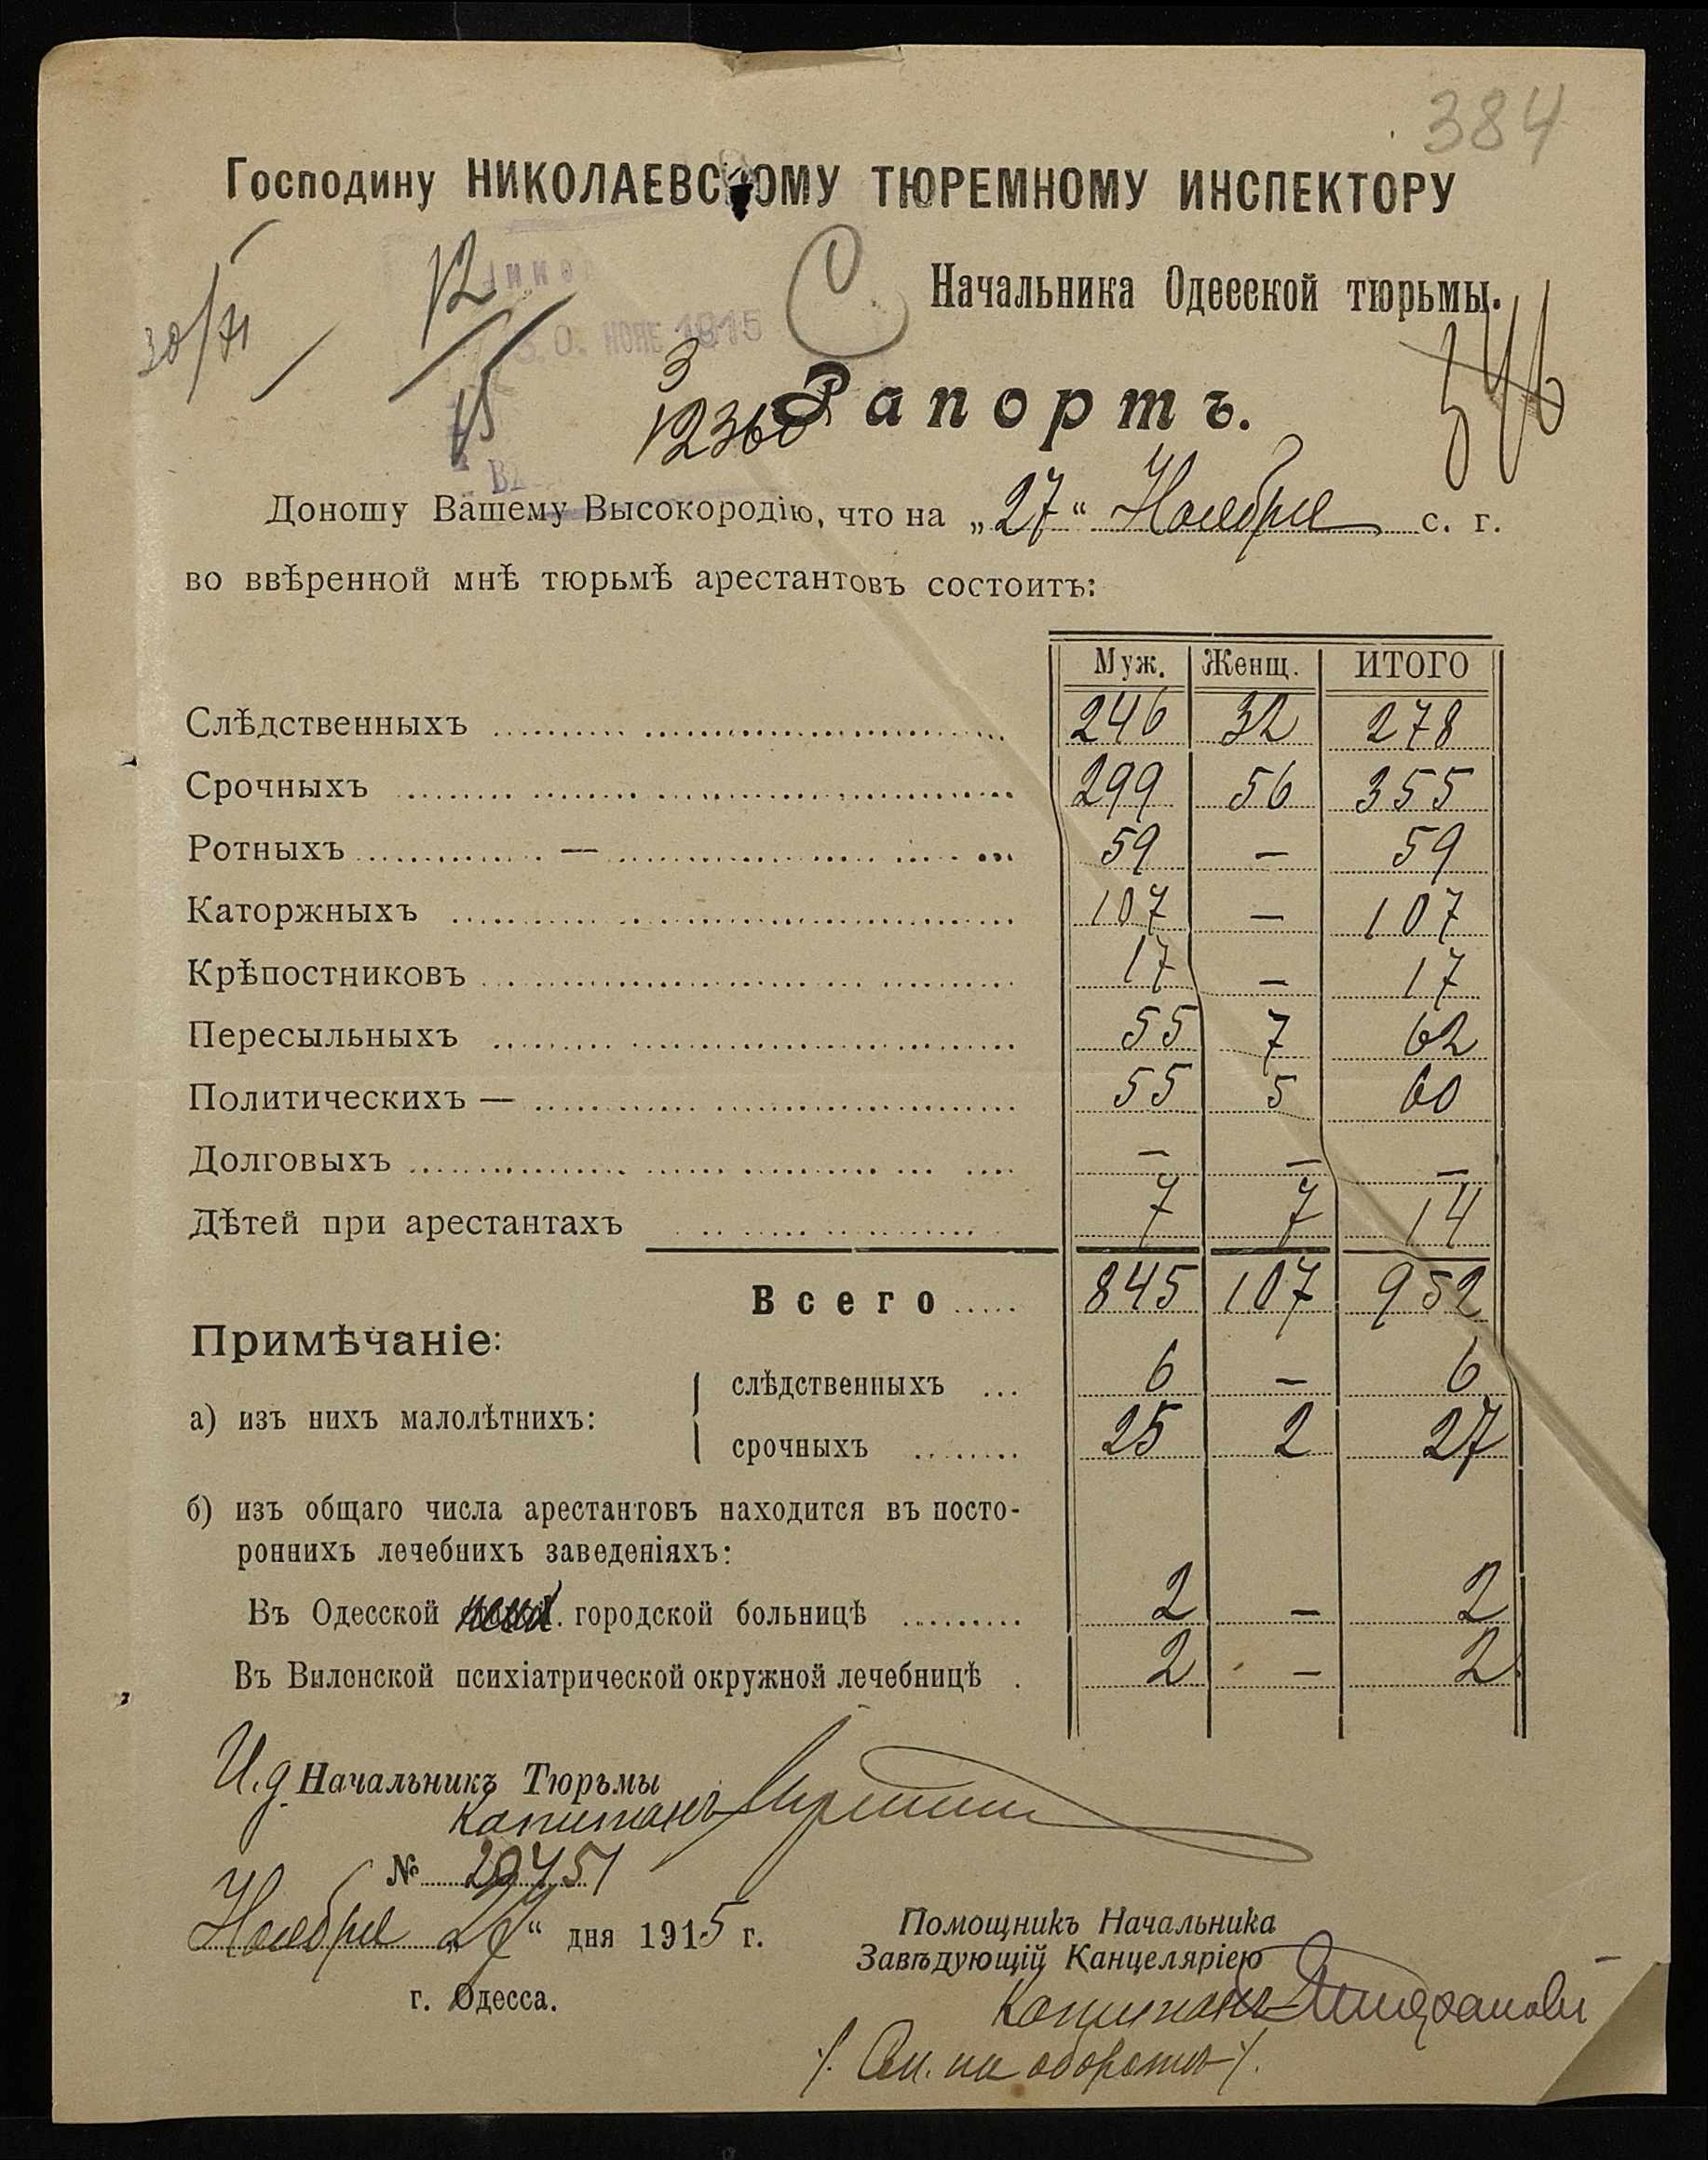 384
Господину НИКОЛАЕВСКОМУ ТЮРЕМНОМУ ИНСПЕКТОРУ
Начальника Одесской тюрьмы.
30/XI
12
15
30 НОЯБ 1915
С
3
12360
546
Рапортъ.
Доношу Вашему Высокородію, что на „27“ Ноября с. г.
во ввѣренной мнѣ тюрьмѣ арестантовъ состоитъ:
Муж. Женщ. ИТОГО
Слѣдственныхъ 246 32 278
Срочныхъ 299 56 355
Ротныхъ — 59 — 59
Каторжныхъ 107 — 107
Крѣпостниковъ 17 — 17
Пересыльныхъ 55 7 62
Политическихъ — 55 5 60
Долговыхъ — — —
Дѣтей при арестантахъ 7 7 14
Всего 845 107 952
Примѣчаніе:
а) изъ нихъ малолѣтнихъ:
слѣдственныхъ 6 — 6
срочныхъ 25 2 27
б) изъ общаго числа арестантовъ находится въ посто-
роннихъ лечебнихъ заведеніяхъ:
Въ Одесской городской больницѣ 2 — 2
Въ Виленской психіатрической окружной лечебницѣ 2 — 2
И.д. Начальникъ Тюрьмы
Капитанъ
№ 20451
Ноября „27“ дня 1915 г.
г. Одесса.
Помощникъ Начальника
Завѣдующій Канцеляріею
Капитанъ
/. См. на оборотѣ /.